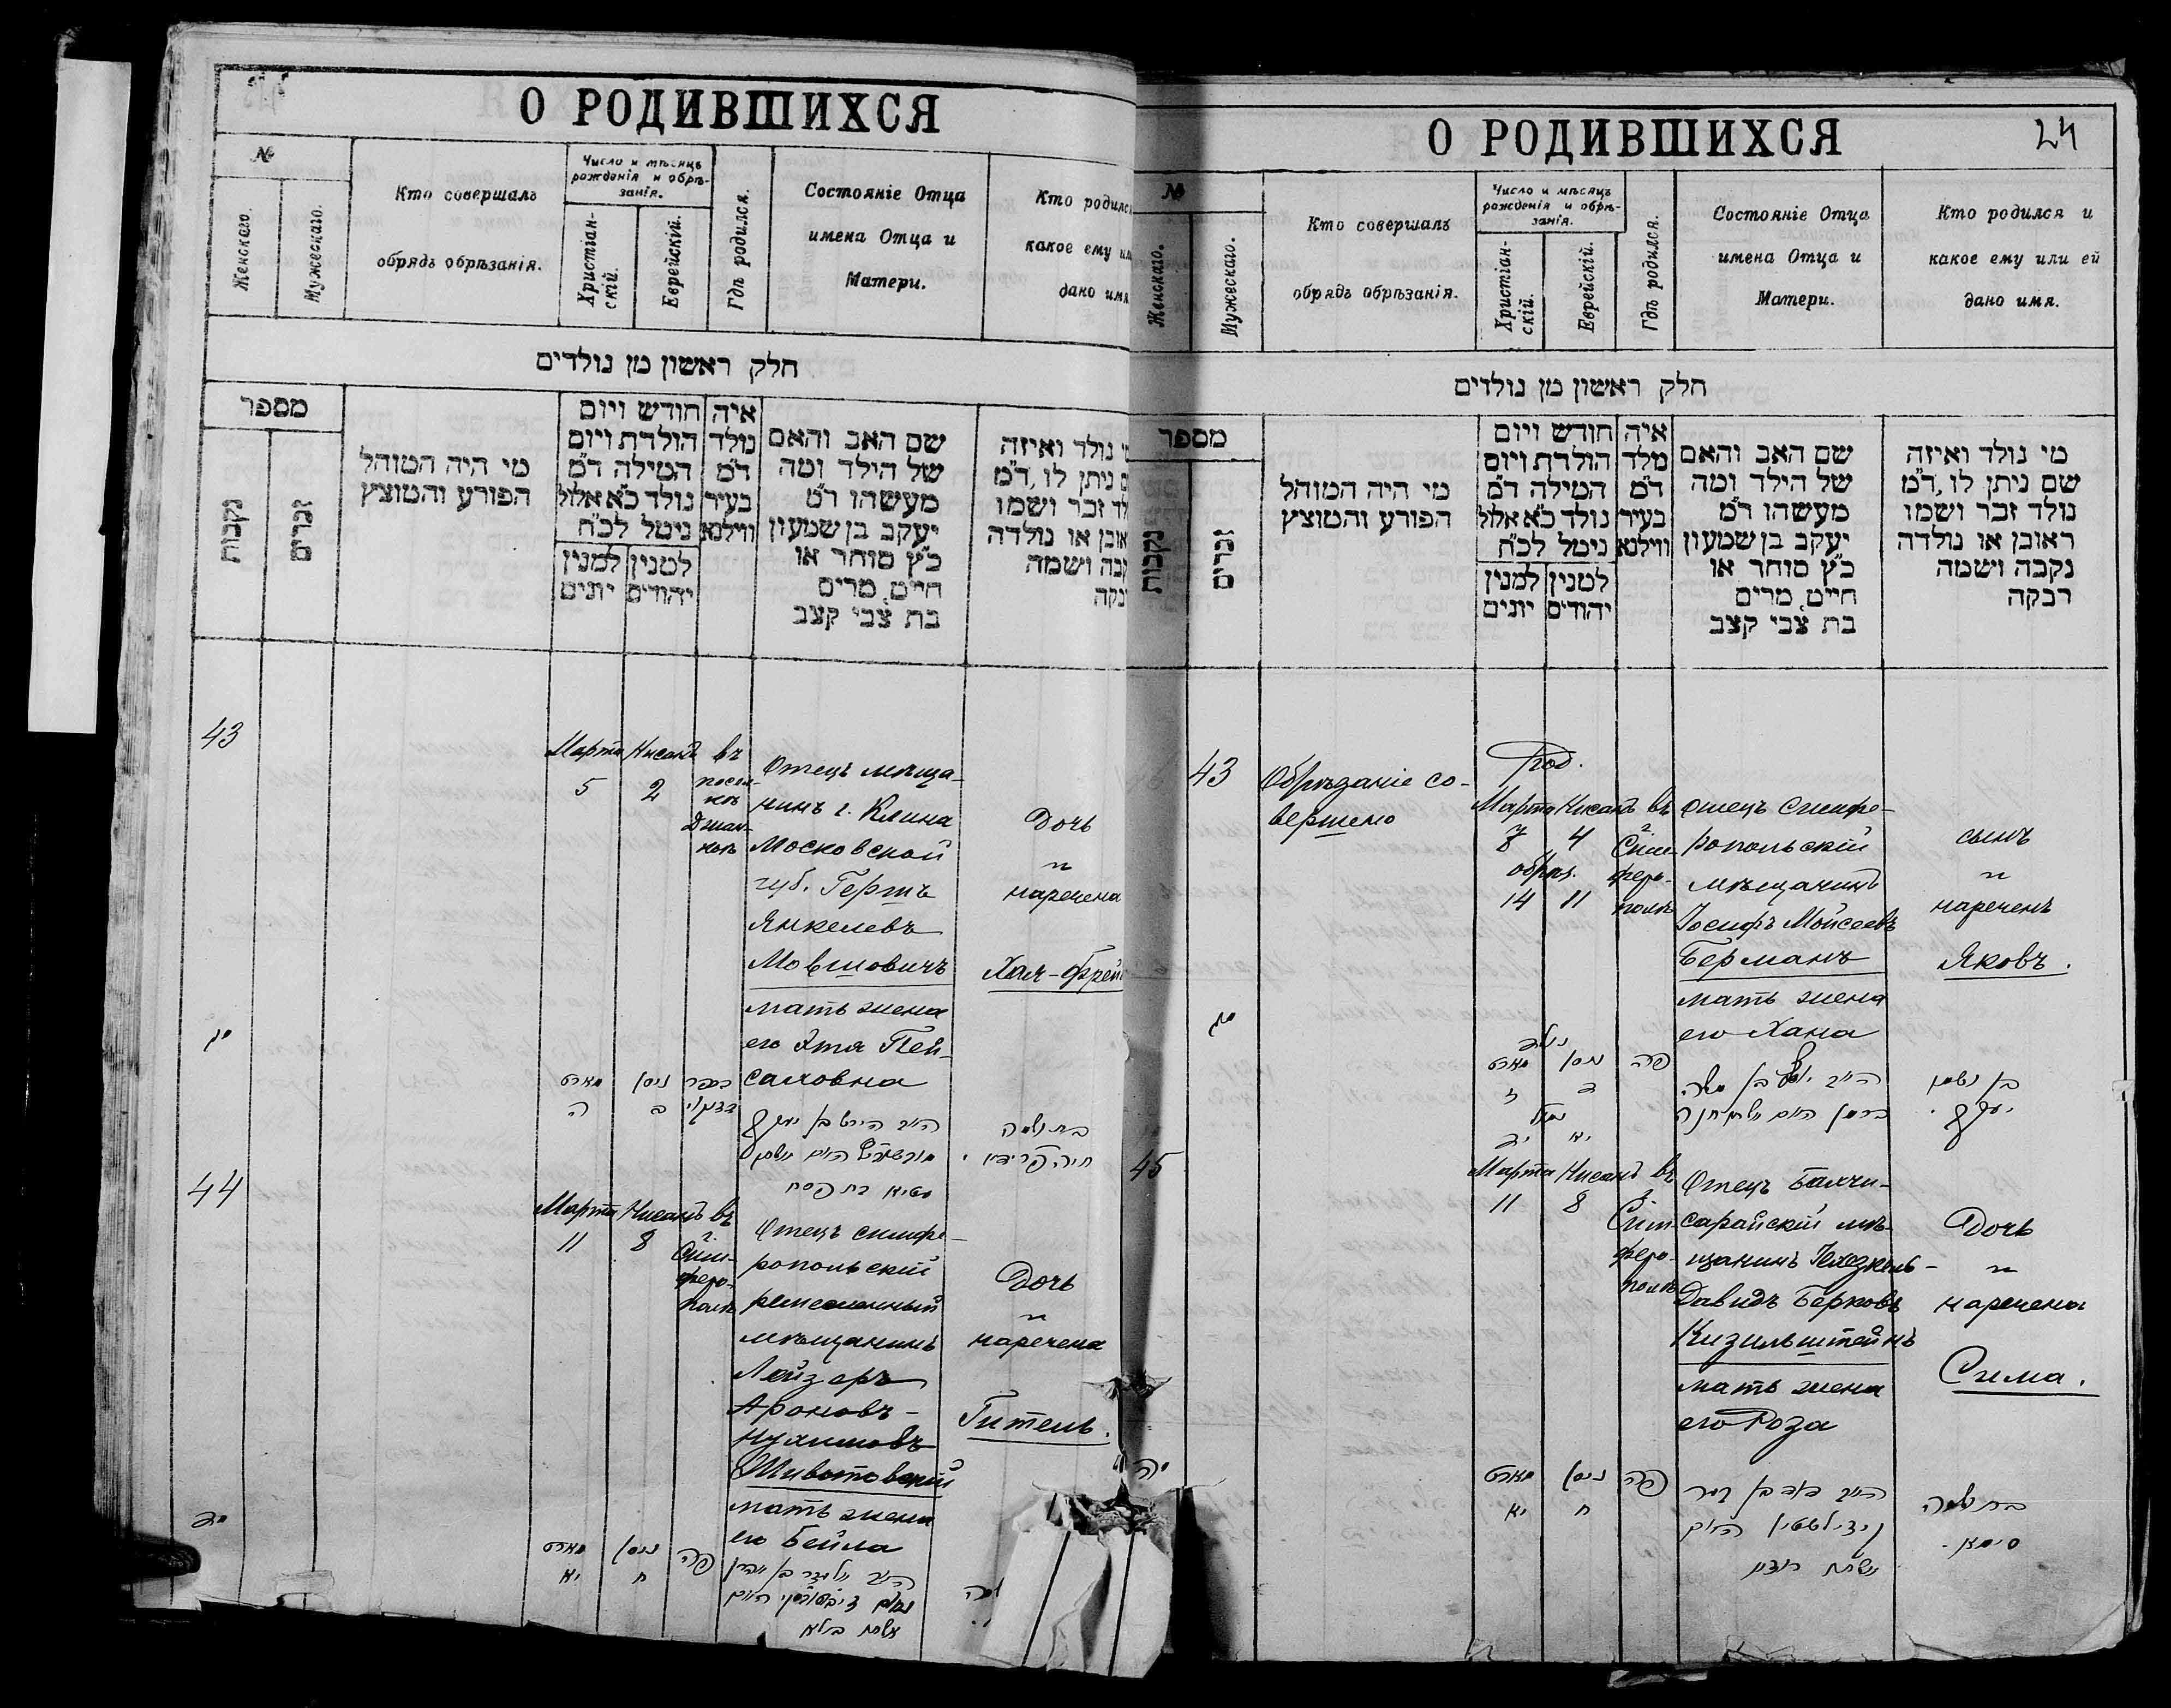 О РОДИВШИХСЯ
№
Женскаго.
Мужескаго.
Кто совершалъ
обрядъ обрѣзанія.
Число и мѣсяцъ
рожденія и обрѣ-
занія.
Христіан-
скій.
Еврейскій.
Гдѣ родился.
Состояніе Отца
имена Отца и
Матери.
Кто родился
какое ему
дано имя
חלק ראשון מן נולדים
מספר
נקבות
זכרים
מי היה המוהל
הפורע והמוצץ
חודש ויום
הולדת ויום
המילה ד״מ
נולד כ״א אלול
ניטל לכ״ח
למנין למנין
יהודים יונים
איה
נולד
ד״מ
בעיר
ווילנא
שם האב והאם
של הילד ומה
מעשהו ד״מ
יעקב בן שמעון
כ״ץ סוחר או
חייט, מרים
בת צבי קצב
נולד ואיזה
ניתן לו, ד״מ
זכר ושמו
או נולדה
ושמה
43
Марта Нисанъ въ
5 2
посел-
Джан-
Отецъ мѣща-
нинъ г. Клина
Московской
губ. Гершъ
Янкелевъ
Мовшовичъ
мать жена
его Этя Пей-
саховна
Дочь
и
наречена
Хая-Фрей
מארט ניסן
ה ב
44
Марта Нисанъ въ
11 8
г.
Сим-
феро-
полѣ
Отецъ симфе-
ропольскій
ремесленный
мѣщанинъ
Лейзеръ
Ароновъ-
Нухимовъ
Животовскій
мать жена
его Бейла
Дочь
и
наречена
Гитель.
מארט ניסן פה
יא ח
О РОДИВШИХСЯ
24
№
Женскаго.
Мужескаго.
Кто совершалъ
обрядъ обрѣзанія.
Число и мѣсяцъ
рожденія и обрѣ-
занія.
Христіан-
скій.
Еврейскій.
Гдѣ родился.
Состояніе Отца
имена Отца и
Матери.
Кто родился и
какое ему или ей
дано имя.
חלק ראשון מן נולדים
מספר
נקבות
זכרים
מי היה המוהל
הפורע והמוצץ
חודש ויום
הולדת ויום
המילה ד״מ
נולד כ״א אלול
ניטל לכ״ח
למנין למנין
יהודים יונים
איה
נולד
ד״מ
בעיר
ווילנא
שם האב והאם
של הילד ומה
מעשהו ד״מ
יעקב בן שמעון
כ״ץ סוחר או
חייט, מרים
בת צבי קצב
מי נולד ואיזה
שם ניתן לו, ד״מ
נולד זכר ושמו
ראובן או נולדה
נקבה ושמה
רבקה
43
Обрѣзаніе со-
вершено
род.
Марта Нисанъ въ
7 4
обрѣз.
14 11
г.
Сим-
феро-
полѣ
отецъ Симфе-
ропольскій
мѣщанинъ
Іосифъ Мойсеевъ
Берманъ
мать жена
его Хана
сынъ
и
нареченъ
Яковъ.
מארט ניסן פה
ז ד
45
Марта Нисанъ въ
11 8
г.
Сим-
феро-
полѣ
Отецъ Бахчи-
сарайскій мѣ-
щанинъ
Давидъ Берковъ
Кизильштейнъ
мать жена
его Роза
Дочь
и
наречена
Сима.
מארט ניסן פה
יא ח
סימא.